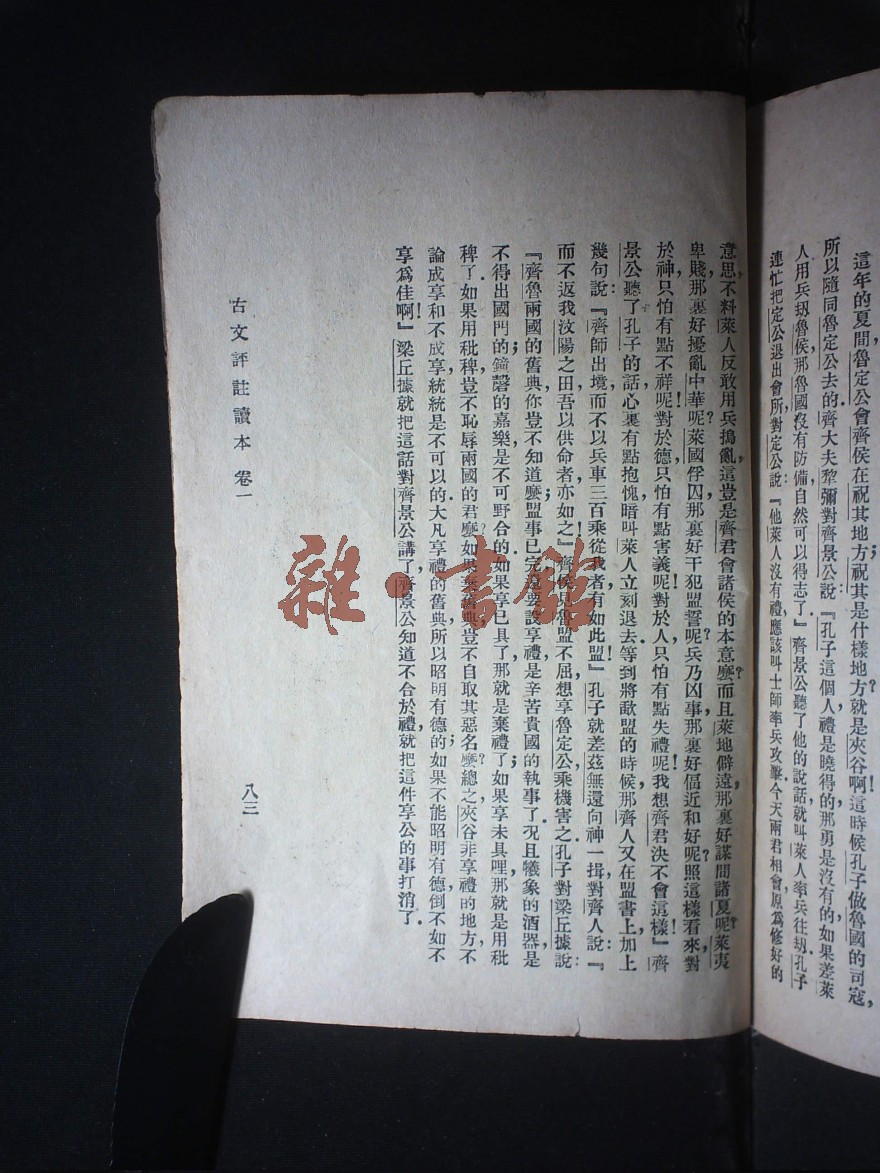 這年的夏間，魯定公會齊侯在祝其地方；祝其是什樣地方？就是夾谷啊！這時候孔子做魯國的司寇，
所以隨同魯定公去的。齊大夫犂彌對齊景公說：『孔子這個人，禮是曉得的，那勇是沒有的，如果差萊
人用兵刼魯侯，那魯國沒有防備，自然可以得志了。』齊景公聽了他的說話，就叫萊人率兵往刼。孔子
連忙把定公退出會所，對定公說：『他萊人沒有禮，應該叫士師率兵攻擊。今天兩君相會，原爲修好的
意思，不料萊人反敢用兵搗亂，這豈是齊君會諸侯的本意麽？而且萊地僻遠，那裏好謀間諸夏呢？萊夷
卑賤，那裏好擾亂中華呢？萊國俘囚，那裏好干犯盟誓呢？兵乃凶事，那裏好偪近和好呢？照這樣看來，對
於神，只怕有點不祥呢！對於德，只怕有點害義呢！對於人，只怕有點失禮呢！我想齊君決不會這樣！』齊
景公聽了孔子的話，心裏有點抱愧，暗叫萊人立刻退去。等到將歃盟的時候，那齊人又在盟書上加上
幾句說：『齊師出境，而不以兵車三百乘從我者，有如此盟！』孔子就差茲無還向神一揖，對齊人說：『
而不返我汶陽之田，吾以供命者，亦如之！』齊侯見魯盟不屈，想享魯定公，乘機害之。孔子對梁丘據說：
『齊魯兩國的舊典，你豈不知道麽？盟事已完，還要設享禮，是辛苦貴國的執事了。况且犧象的酒器，是
不得出國門的；鐘磬的嘉樂，是不可野合的。如果享已具了，那就是棄禮了；如果享未具哩，那就是用秕
稗了。如果用秕稗，豈不恥辱兩國的君麽？如果棄舊典，豈不自取其惡名麽？總之，夾谷非享禮的地方，不
論成享和不成享，統統是不可以的。大凡享禮的舊典，所以昭明有德的；如果不能昭明有德，倒不如不
享爲佳啊！』梁丘據就把這話對齊景公講了，齊景公知道不合於禮，就把這件享公的事打消了。
古文評註讀本 卷一
八三
雜·書館